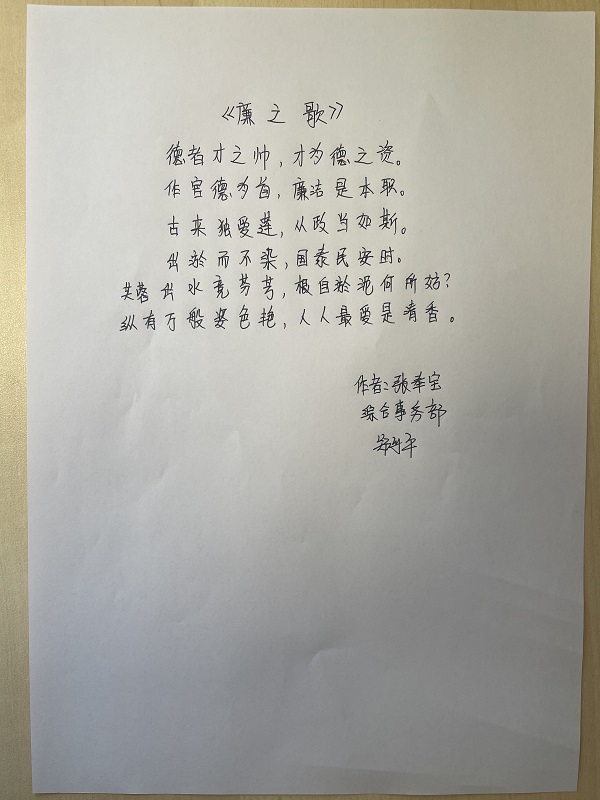 《廉之歌》
德者才之帅，才为德之资。
作官德为首，廉洁是本职。
古来独爱莲，从政当如斯。
出淤而不染，国泰民安时。
芙蓉出水竞芬芳，根自淤泥何所妨？
纵有万般姿色艳，人人最爱是清香。
作者：张季宝
综合事务部